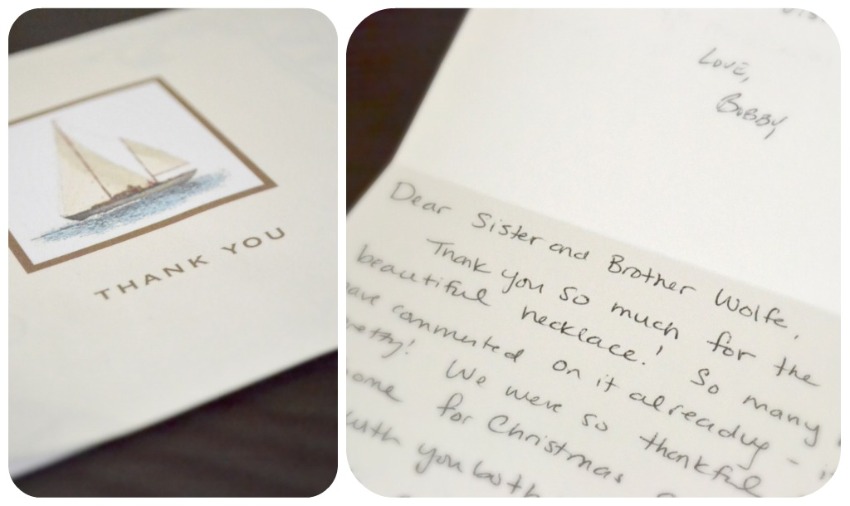 THANK YOU
Love,
Bobby
Dear Sister and Brother Wolfe,
Thank you so much for the
beautiful necklace! So many
commented on it already -
We were so thankful
for Christmas
with you both